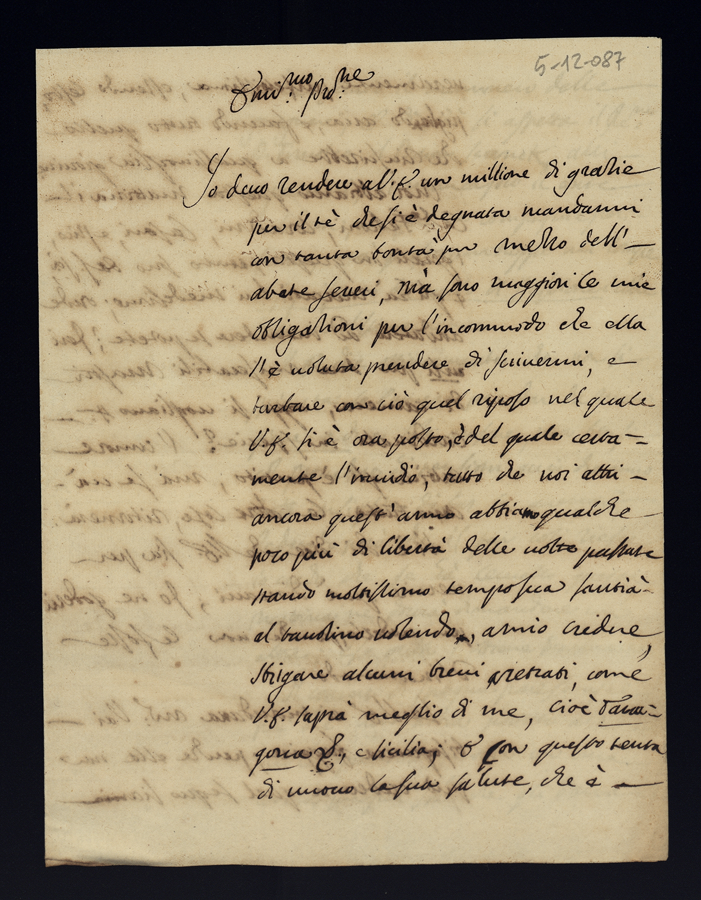 5-12-087
Em:mo P:rone
Jo devo rendere all'E. un millione di grazie
per il tè che si è degnata mandarmi
con tanta bontà per mezzo dell'
abate Severi, mà sono maggiori le mie
obligazioni per l'incommodo che ella
s'è voluta prendere di scrivermi, e
turbare con ciò quel riposo nel quale
V.E. si è ora posto, e del quale certa-
mente l'invidio, tutto che noi altri
ancora quest'anno abbiamo qualche
poco più di libertà delle volte passate
stando moltissimo tempo sua santità
al tavolino volendo, a mio credere,
sbrigare alcuni brevi pretesi, come
V.E. saprà meglio di me, cioè d'Ara-
gona &, e Sicilia; e con questo tenta
di nuovo la sua salute, che è